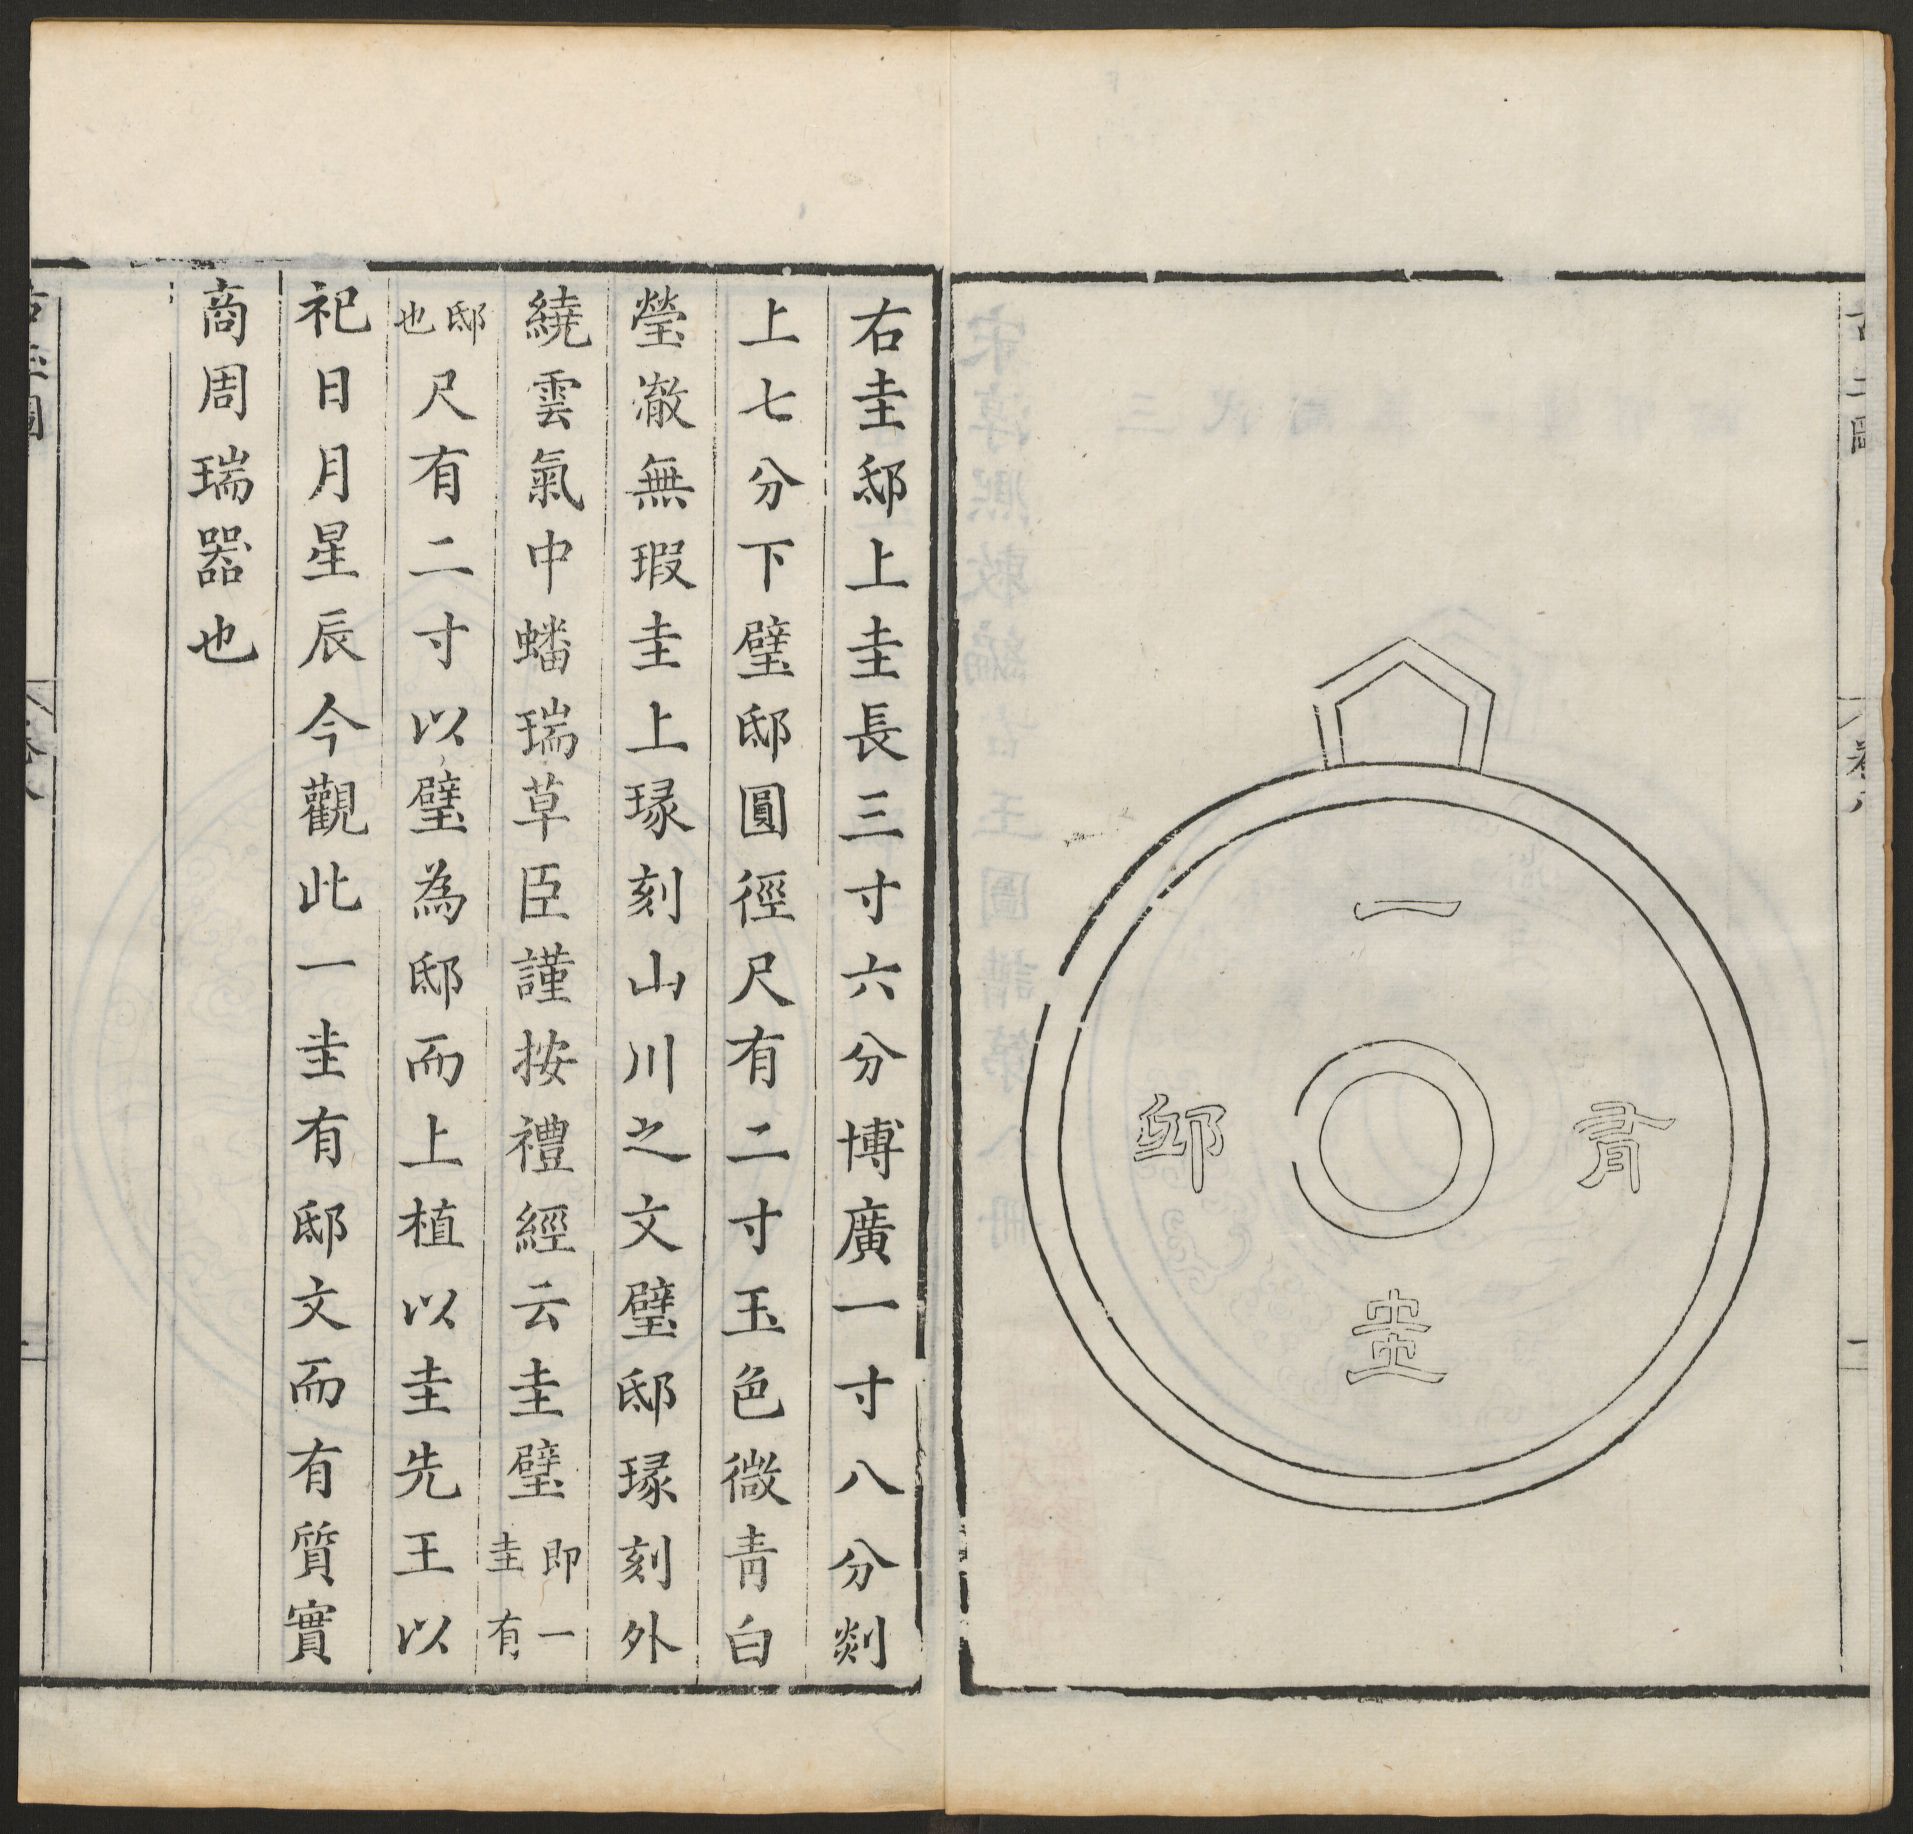 一
圭
有
邸
右圭邸上圭長三寸六分博廣一寸八分剡
上七分下璧邸圓徑尺有二寸玉色微青白
瑩澈無瑕圭上瑑刻山川之文璧邸瑑刻外
繞雲氣中蟠瑞草臣謹按禮經云圭璧即一圭有
邸也尺有二寸以璧為邸而上植以圭先王以
祀日月星辰今觀此一圭有邸文而有質實
商周瑞器也